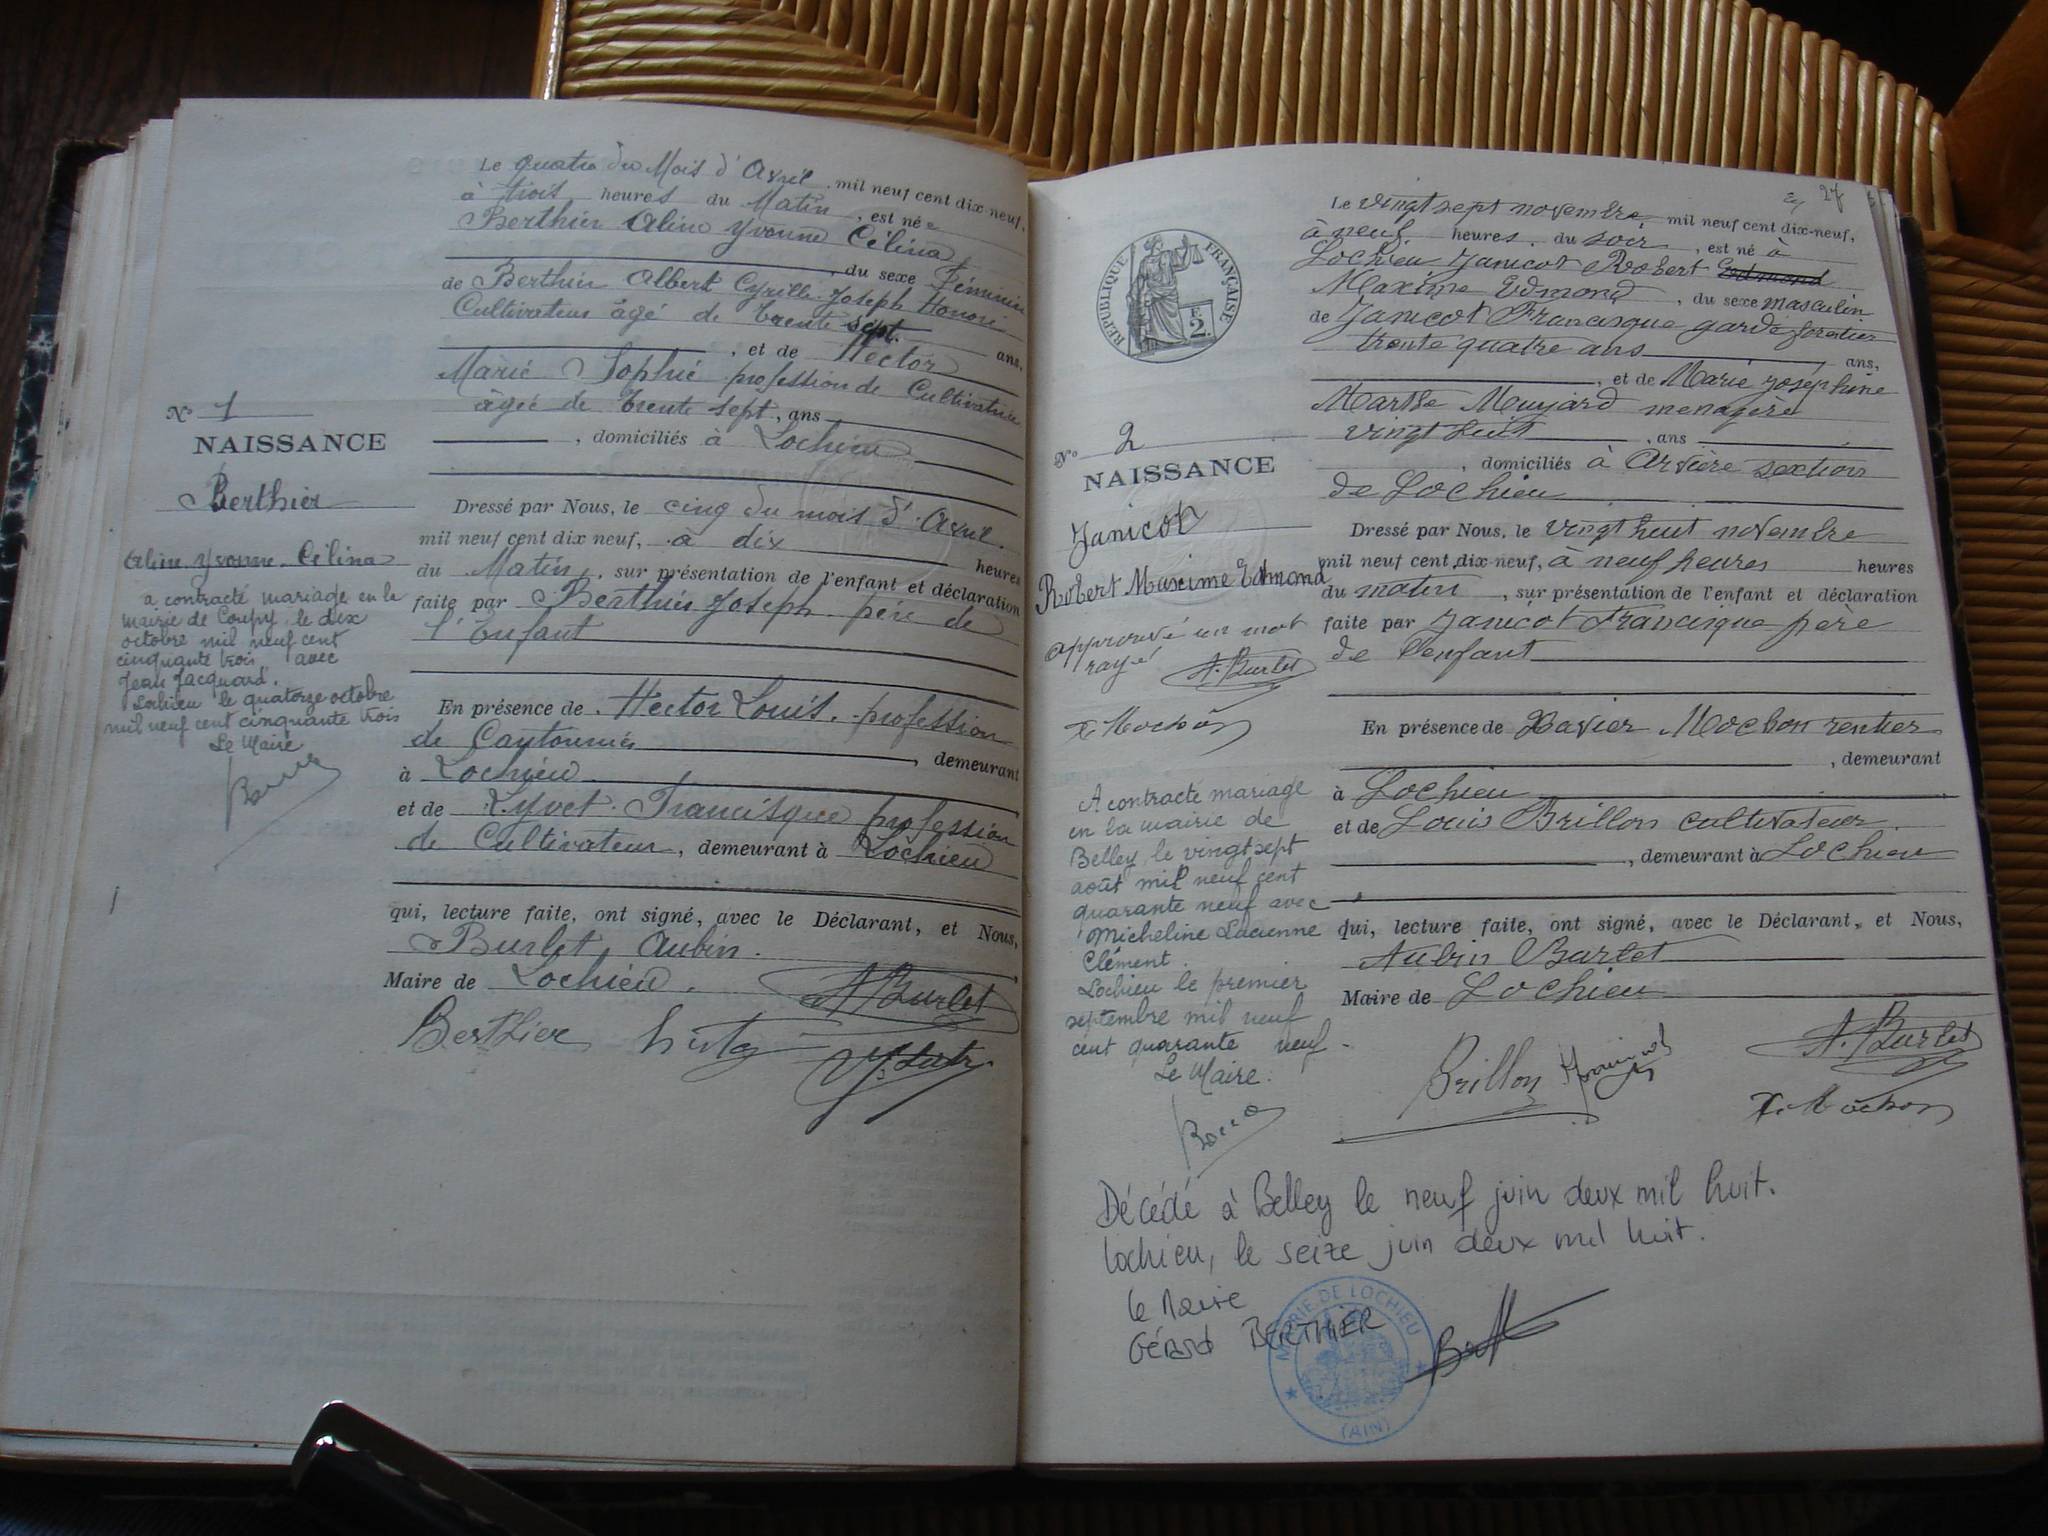 Le quatre du Mois d'Avril, mil neuf cent dix-neuf,
à trois heures du Matin, est née
Berthier Aline Yvonne Célina
, du sexe Féminin
de Berthier Albert Cyrille Joseph Honoré
Cultivateur âgé de trente sept ans,
, et de Hector
Marie Sophie profession de Cultivatrice
âgée de trente sept, ans
, domiciliés à Lochieu
Nº 1
NAISSANCE
Berthier
Aline Yvonne Célina
a contracté mariage en la
mairie de le dix
octobre mil neuf cent
cinquante trois avec
Jean Jacquard.
Lochieu le quatorze octobre
mil neuf cent cinquante trois
Le Maire
Dressé par Nous, le cinq du mois d'Avril
mil neuf cent dix neuf, à dix heures
du Matin, sur présentation de l'enfant et déclaration
faite par Berthier Joseph père de
l'Enfant
En présence de Hector Louis, profession
de Cantonnier, demeurant
à Lochieu
et de Lyvet Francisque profession
de Cultivateur, demeurant à Lochieu
qui, lecture faite, ont signé, avec le Déclarant, et Nous,
Burlet Aubin.
Maire de Lochieu. A. Burlet
Berthier
27
Le vingt sept novembre mil neuf cent dix-neuf,
à neuf heures du soir, est né à
Lochieu Janicot Robert Edmond
Maxime Edmond, du sexe masculin
de Janicot Francisque garde forestier
trente quatre ans ans,
, et de Marie Joséphine
Marthe Mujard menagère
vingt huit, ans
, domiciliés à Arvière section
de Lochieu
RÉPUBLIQUE FRANÇAISE
E
2
Nº 2
NAISSANCE
Janicot
Robert Maxime Edmond
Approuvé un mot
rayé A. Burlet
X. Mochon
A contracté mariage
en la mairie de
Belley, le vingt sept
août mil neuf cent
quarante neuf avec
Micheline Lucienne
Clément.
Lochieu le premier
septembre mil neuf
cent quarante neuf.
Le Maire.
Dressé par Nous, le vingt huit novembre
mil neuf cent dix-neuf, à neuf heures heures
du matin, sur présentation de l'enfant et déclaration
faite par Janicot Francisque père
de l'enfant
En présence de Xavier Mochon rentier
, demeurant
à Lochieu
et de Louis Brillon cultivateur
, demeurant à Lochieu
qui, lecture faite, ont signé, avec le Déclarant, et Nous,
Aubin Burlet
Maire de Lochieu
Brillon A. Burlet
X. Mochon
Décédé à Belley le neuf juin deux mil huit.
Lochieu, le seize juin deux mil huit.
Le Maire
Gérard BERTHIER
MAIRIE DE LOCHIEU
(AIN)